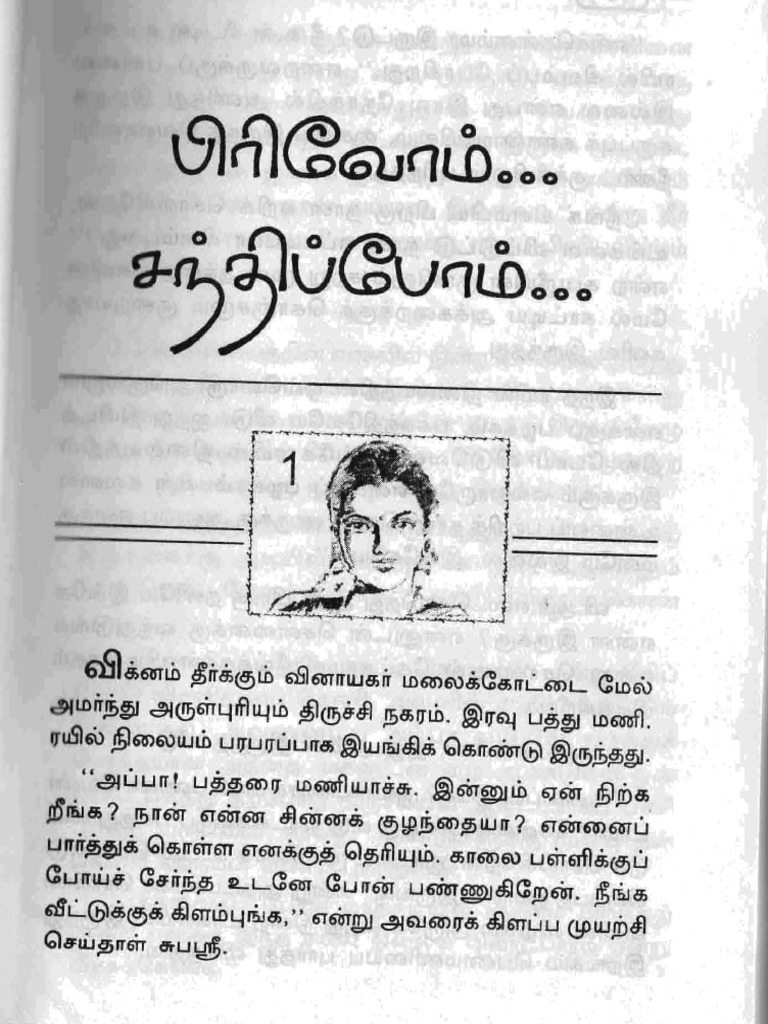 பிரிவோம்...
சந்திப்போம்...
1
விக்னம் தீர்க்கும் விநாயகர் மலைக்கோட்டை மேல்
அமர்ந்து அருள்புரியும் திருச்சி நகரம். இரவு பத்து மணி.
ரயில் நிலையம் பரபரப்பாக இயங்கிக் கொண்டு இருந்தது.
"அப்பா! பத்தரை மணியாச்சு. இன்னும் ஏன் நிற்க
றீங்க? நான் என்ன சின்னக் குழந்தையா? என்னைப்
பார்த்துக் கொள்ள எனக்குத் தெரியும். காலை பள்ளிக்குப்
போய்ச் சேர்ந்த உடனே போன் பண்ணுகிறேன். நீங்க
வீட்டுக்குக் கிளம்புங்க," என்று அவரைக் கிளப்ப முயற்சி
செய்தாள் சுபஸ்ரீ.